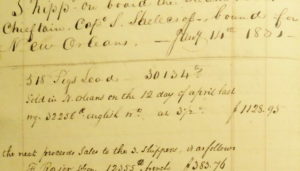 Shipp. on board the
Chieftain Capt. S. Shallcross bound for
New Orleans. — Jany. 14th 1831
518 Pigs Lead — 30134 lb
Sold in N. Orleans on the 12 day of april last
wg. 32256 lb english wt. at 3½c. $1128.95
the neat proceeds Sales to the 3. Shippers, is as follows
12355 lb french $383.76